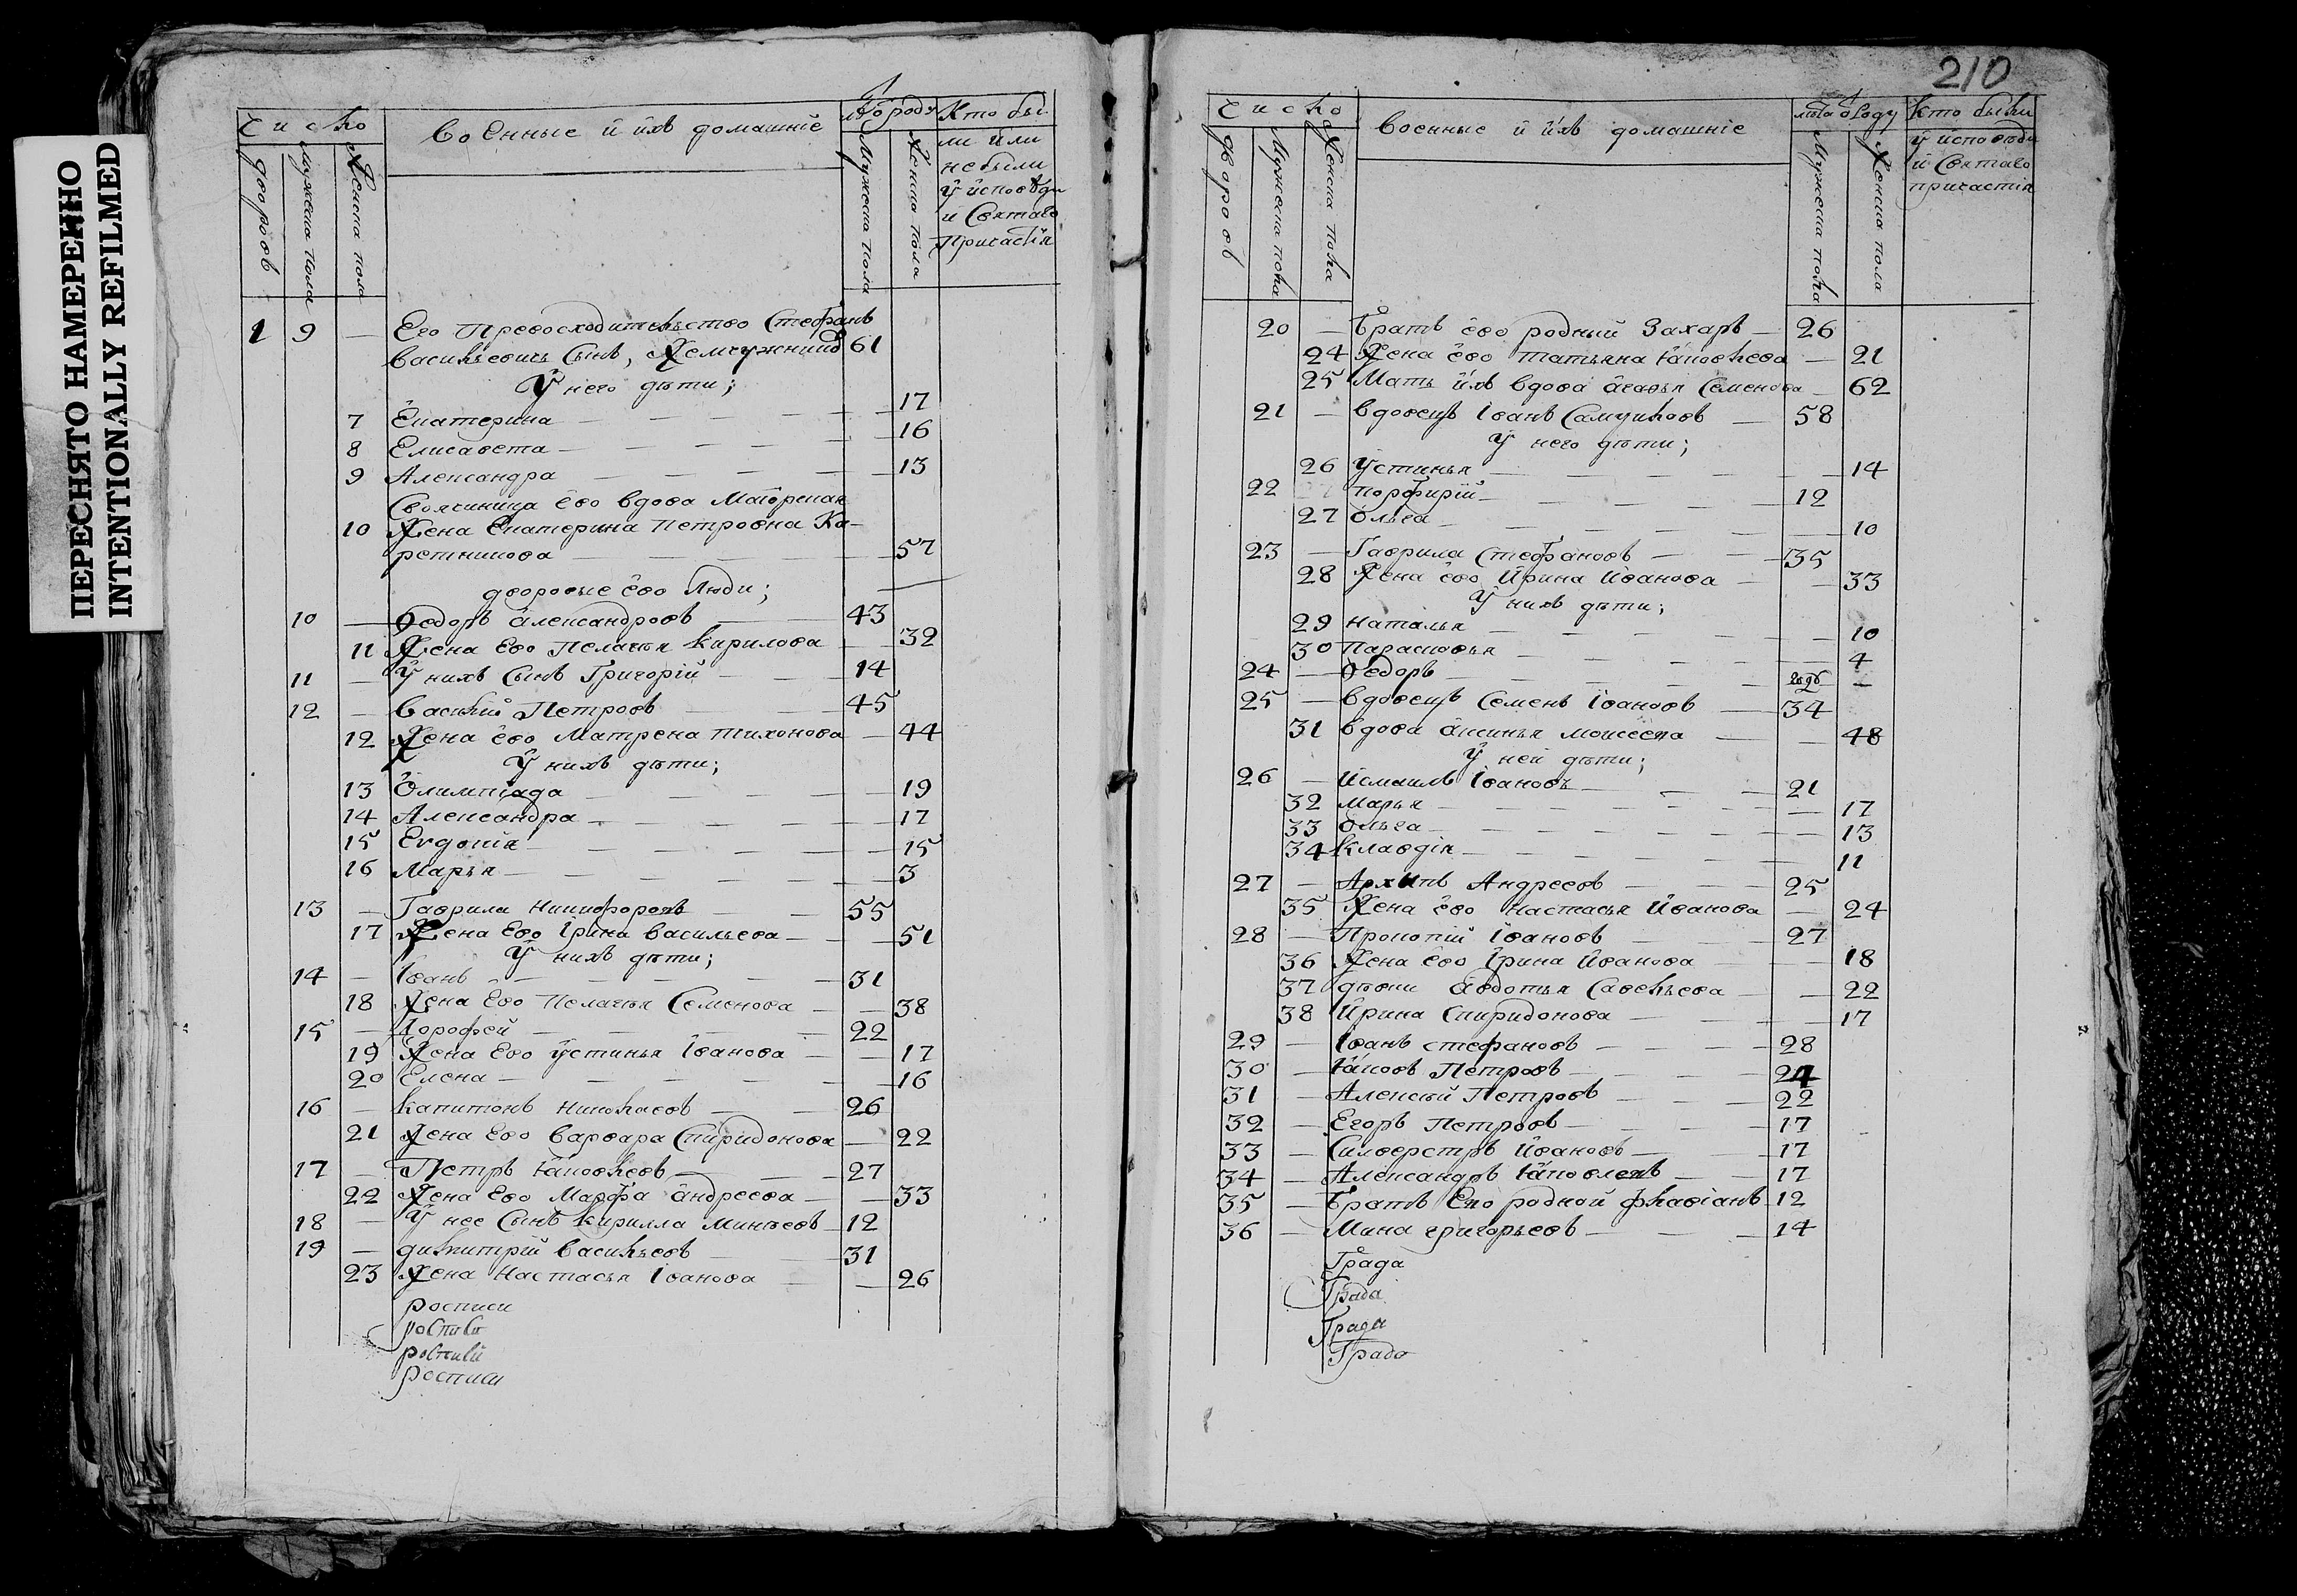 ПЕРЕСНЯТО НАМЕРЕННО
INTENTIONALLY REFILMED
число
дворовъ
мужеска пола
женска пола
военные и ихъ домашнiе
мужеска пола
женска пола
Кто бы-
ли или
небыли
у исповѣди
и Святаго
Причастiя
1 9 — Его Превосходительство Стефанъ
Васильевичь Сынъ, Жемчужниковъ 61
У него дѣти;
7 Екатерина — 17
8 Елисавета — 16
9 Александра — 13
Свояченица ево вдова Маiорская
10 Жена Екатерина Петровна Ка-
ретникова — 57
дворовые ево Люди;
10 — Ѳедоръ Александровъ 43
11 Жена Ево Пелагья Кирилова — 32
11 — У нихъ Сынъ Григорiй — 14
12 — Василiй Петровъ — 45
12 Жена ево Матрена Тихонова — 44
У нихъ дѣти;
13 Олимпiада — 19
14 Александра — 17
15 Евдокiя — 15
16 Марья — 3
13 — Гаврила Никифоровъ — 55
17 Жена Ево Iрина Васильева — 51
У нихъ дѣти;
14 — Iванъ — 31
18 Жена Ево Пелагья Семенова — 38
15 — Дорофей — 22
19 Жена Ево Устинья Iванова — 17
20 Елена — 16
16 — Капитонъ Николаевъ — 26
21 Жена Ево Варвара Спиридонова — 22
17 — Петръ Iаковлевъ — 27
22 Жена Ево Марфа Андреева — 33
18 — У нее Сынъ Кирилла Минѣевъ — 12
19 — Димитрiй Васильевъ — 31
23 Жена Настасья Iванова — 26
росписи
росписи
росписи
росписи
210
число
дворовъ
мужеска пола
женска пола
Военные и ихъ домашнiе
лѣта ѿ роду
Мужеска пола
Женска пола
Кто были
у исповѣди
и Святаго
причастiя
20 — Братъ ево родный Захаръ — 26
24 Жена ево Татьяна Iаковлева — 21
25 Мать ихъ вдова Агафья Семенова — 62
21 — вдовецъ Iванъ Самуиловъ — 58
У него дѣти;
26 Устинья — 14
22 Порфирiй — 12
27 Ольга — 10
23 — Гаврила Стефановъ — 35
28 Жена ево Ирина Иванова — 33
У нихъ дѣти;
29 Наталья — 10
30 Парасковья — 4
24 — Ѳедоръ —
25 — вдовецъ Семенъ Iвановъ — 34
31 вдова Аксинья Моисеева — 48
У ней дѣти;
26 — Исмаилъ Iвановъ — 21
32 Марья — 17
33 Ольга — 13
34 Клавдiя — 11
27 — Архипъ Андреевъ — 25
35 Жена ево Настасья Иванова — 24
28 — Прокопiй Iвановъ — 27
36 Жена ево Iрина Иванова — 18
37 дѣвки Авдотья Савельева — 22
38 Ирина Спиридонова — 17
29 — Iванъ Стефановъ — 28
30 — Iаковъ Петровъ — 24
31 — Алексѣй Петровъ — 22
32 — Егоръ Петровъ — 17
33 — Силверстръ Ивановъ — 17
34 — Александръ Iаковлевъ — 17
35 — Братъ Ево родной Флавiанъ 12
36 — Мина Григорьевъ — 14
Града
Града
Града
Града